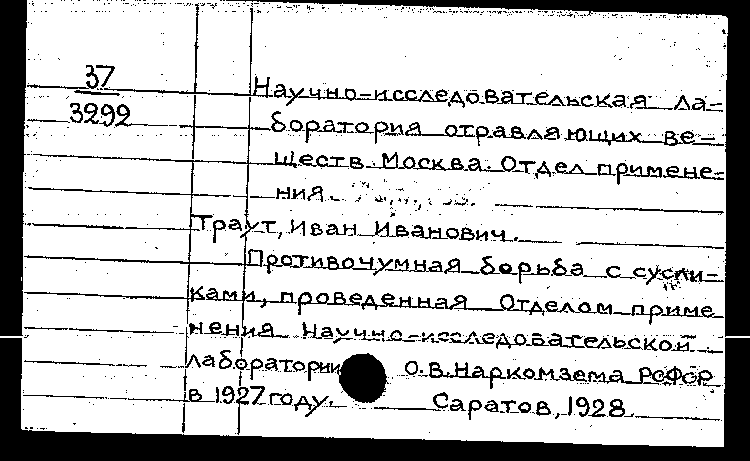 37
3292
Научно-исследовательская ла-
боратория отравляющих ве-
ществ. Москва. Отдел примене-
ния.
Траут, Иван Иванович.
Противочумная борьба с сусли-
ками, проведенная Отделом приме
нения Научно-исследовательской
лаборатории О.В. Наркомзема РСФСР
в 1927 году. Саратов, 1928.